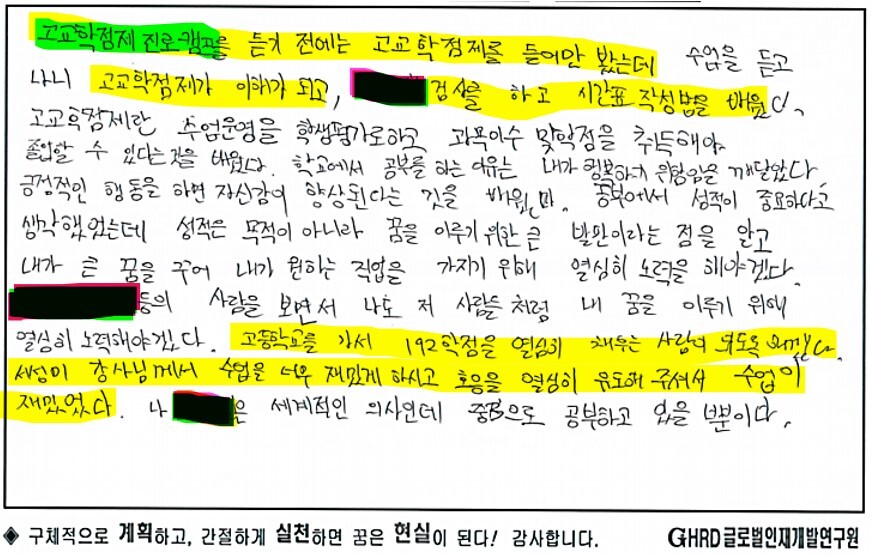 고교학점제 진로캠프를 듣기 전에는 고교학점제를 들어만 봤는데 수업을 듣고
나니 고교학점제가 이해가 되고, 검사를 하고 시간표 작성법을 배웠다.
고교학점제란 수업운영을 학생평가로하고 과목이수 맞학점을 취득해야
졸업할 수 있다는것을 배웠다. 학교에서 공부를 하는 이유는 내가 행복하기 위함임을 깨달았다.
긍정적인 행동을 하면 자신감이 향상된다는 것을 배웠다. 공부에서 성적이 중요하다고
생각했었는데 성적은 목적이 아니라 꿈을 이루기 위한 큰 발판이라는 점을 알고
내가 큰 꿈을 꾸어 내가 원하는 직업을 가지기 위해 열심히 노력을 해야겠다.
등의 사람을 보면서 나도 저 사람들 처럼 내 꿈을 이루기 위해
열심히 노력해야겠다. 고등학교를 가서 192학점을 열심히 채우는 사람이 되도록
강사님께서 수업을 너무 재밌게 하시고 호응을 열심히 유도해 주셔서 수업이
재밌었다. 나 은 세계적인 의사인데 공부하고 있을 뿐이다.
◈ 구체적으로 계획하고, 간절하게 실천하면 꿈은 현실이 된다! 감사합니다.
GHRD글로벌인재개발연구원